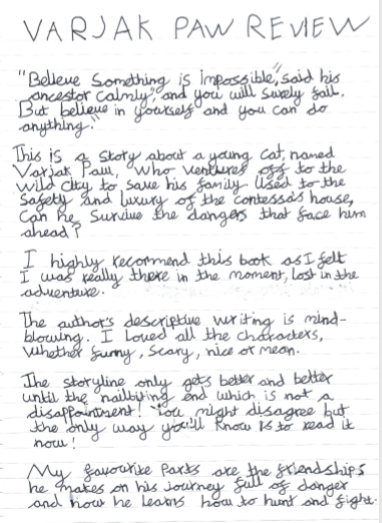 VARJAK PAW REVIEW
"Believe something is impossible," said his
ancestor calmly, "and you will surely fail.
But believe in yourself and you can do
anything."
This is a story about a young cat, named
Varjak Paw, who ventures off to the
wild city to save his family. Used to the
safety and luxury of the contessa's house,
can he survive the dangers that face him
ahead?
I highly recommend this book as I felt
I was really there in the moment, lost in the
adventure.
The author's descriptive writing is mind-
blowing. I loved all the characters,
whether funny, scary, nice or mean.
The storyline only gets better and better
until the nailbiting end which is not a
disappointment! You might disagree but
the only way you'll know is to read it
now!
My favourite parts are the friendships
he makes on his journey full of danger
and how he learns how to hunt and fight.